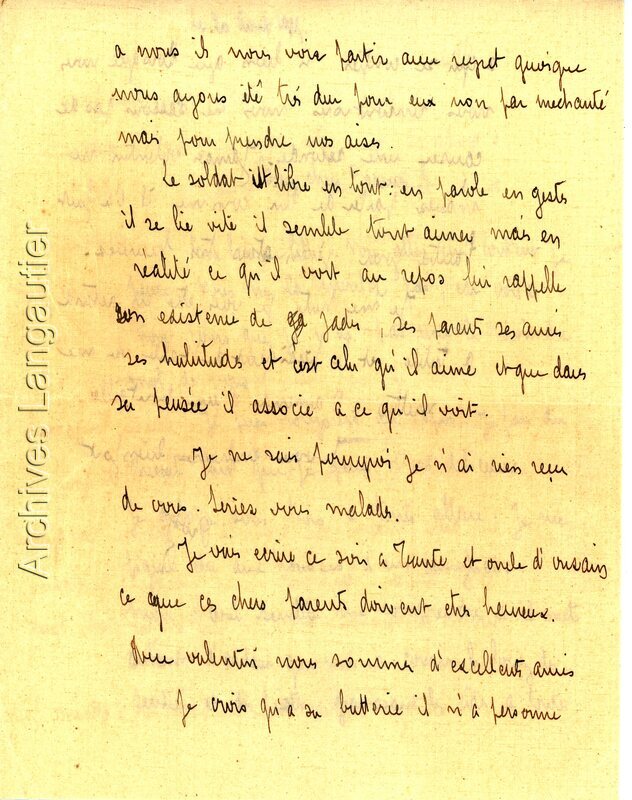 a nous ils nous vois partir avec regret quoique
nous ayons été très dur pour eux non par mechanté
mais pour prendre nos aises.
Le soldat est libre en tout. en parole en gestes
il se lie vite il semble tout aimer mais en
realité ce qu'il voit au repos lui rappelle
son existence de jadis, ses parents ses amis
ses habitudes et c'est celu qu'il aime et que dans
sa pensée il associe a ce qu'il voit.
Je ne sais pourquoi je n'ai rien reçu
de vous. Seriez vous malade.
Je vais ecrire ce soir a Tante et oncle
ce que ces chers parents doivent etre heureux.
Avec valentin nous sommes d'excellents amis
Je crois qu'a sa batterie il n'a personne
Archives Langautier